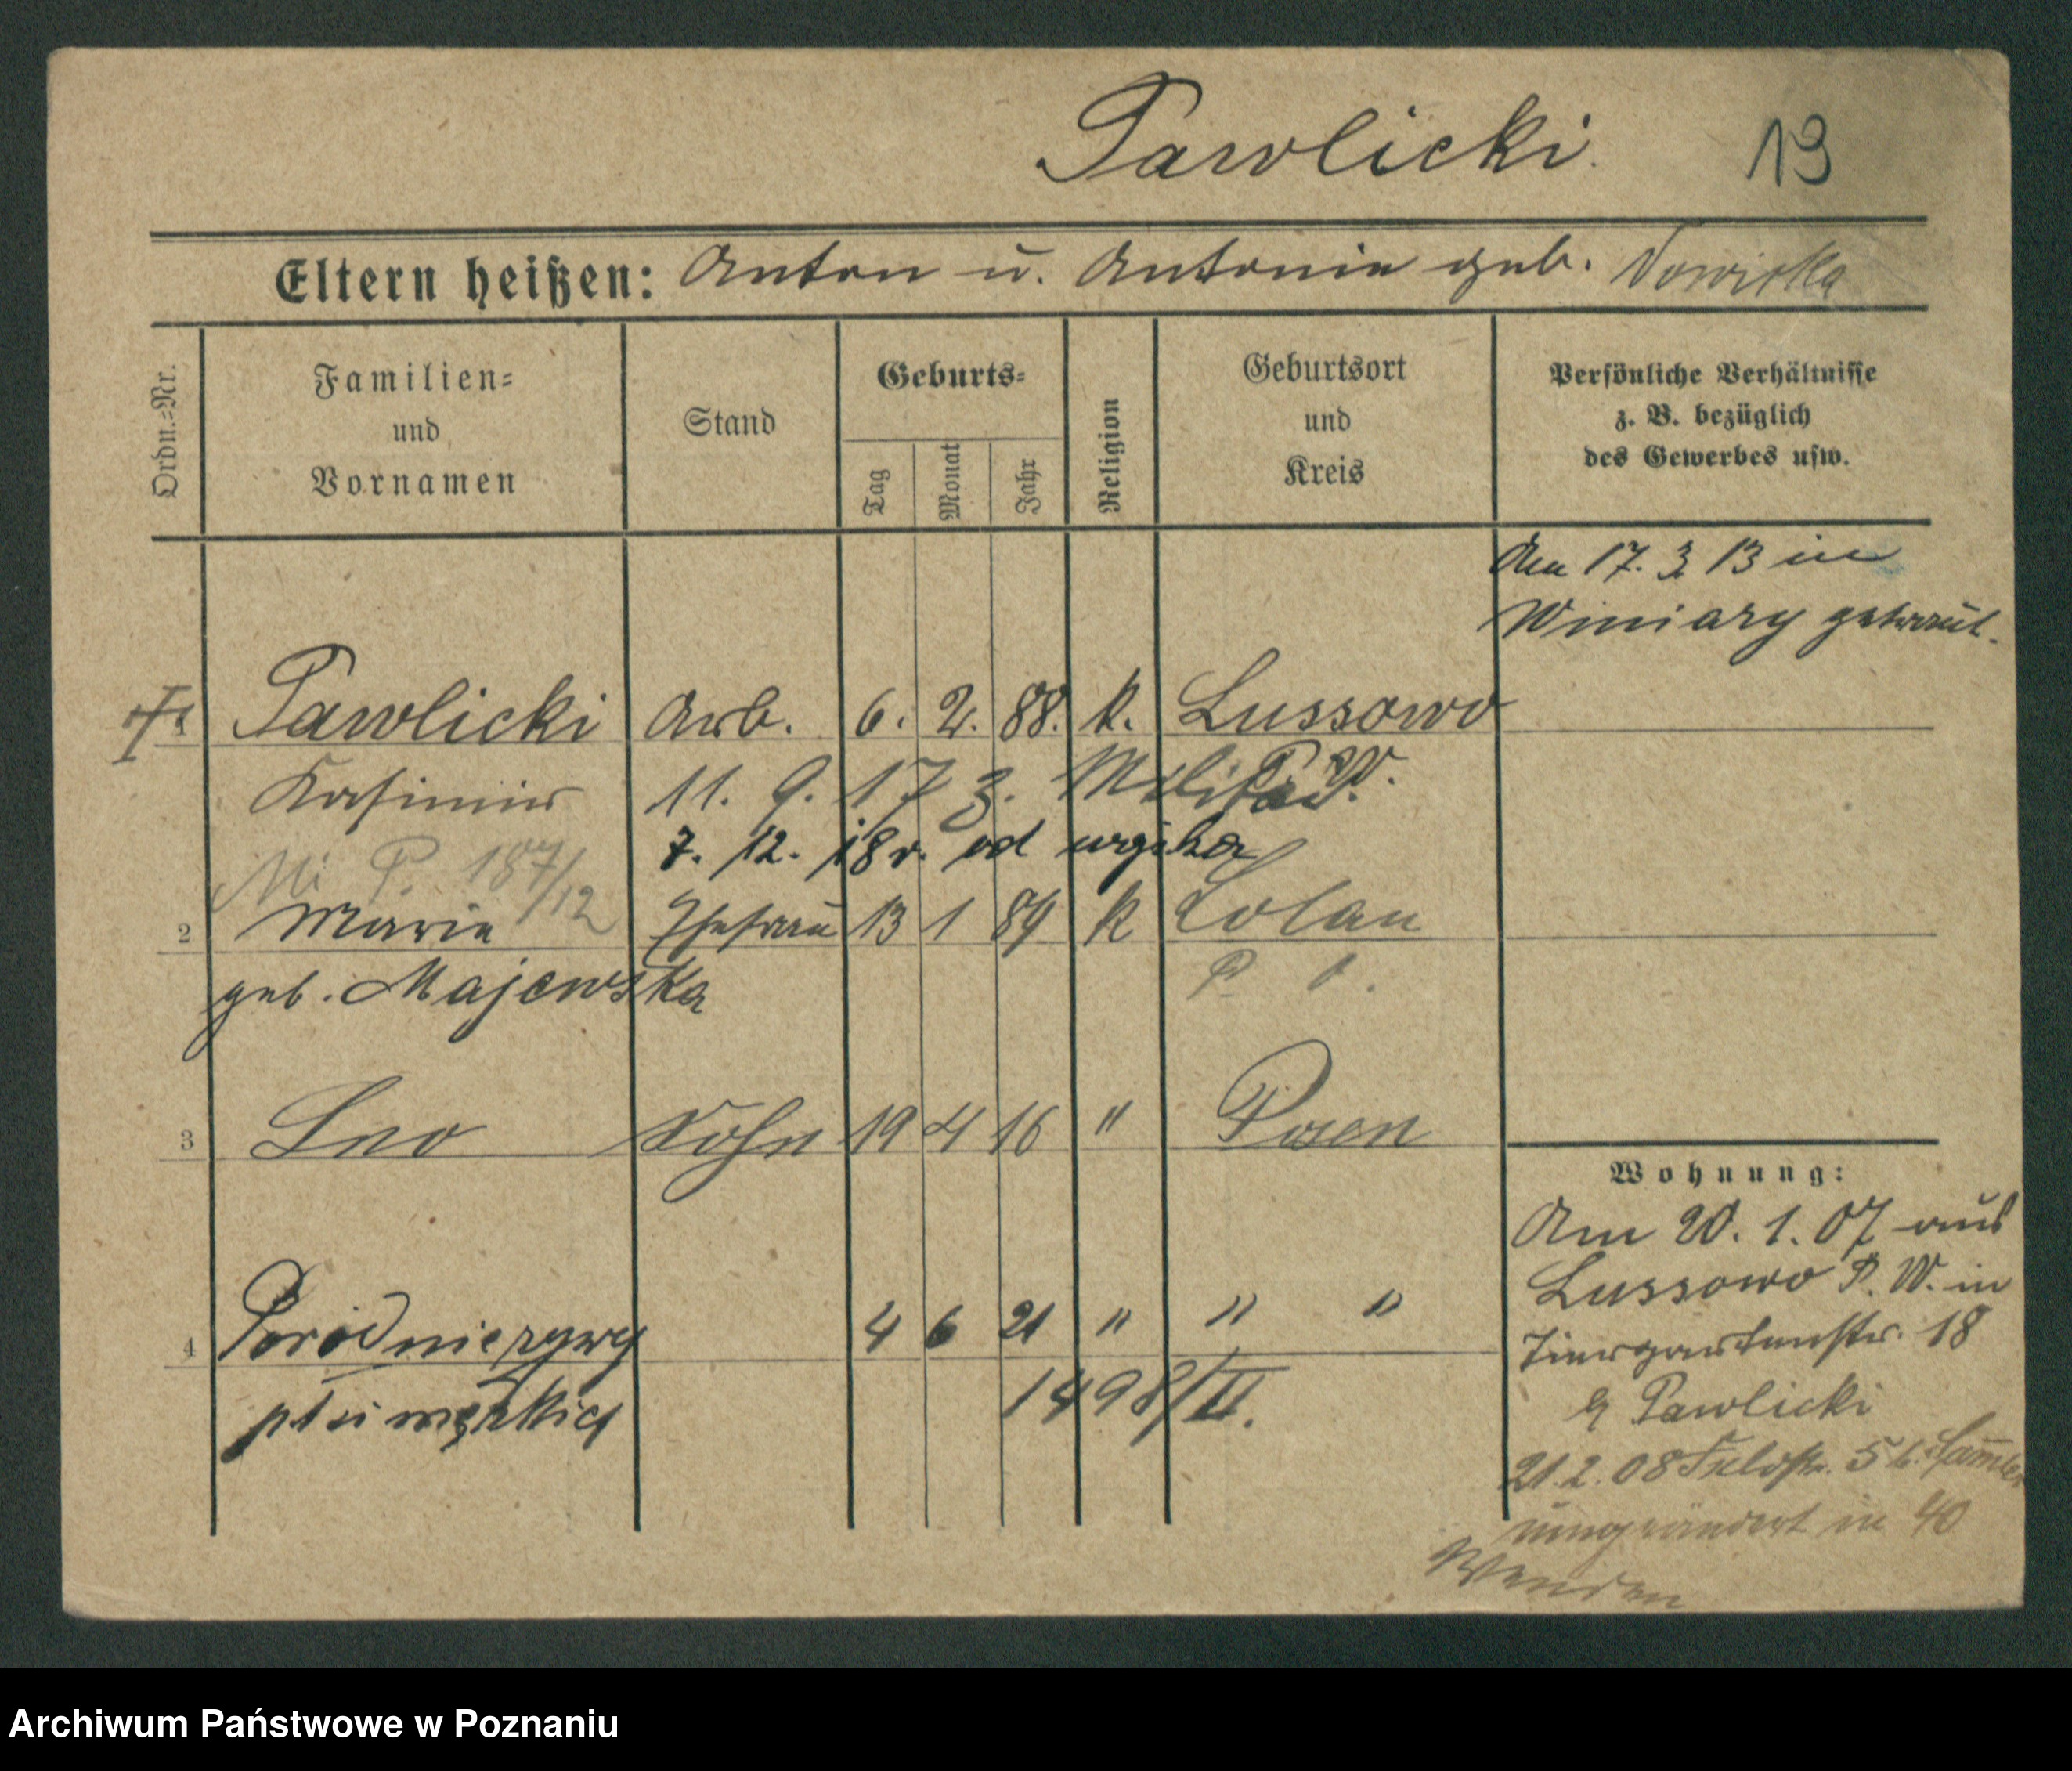 Pawlicki. 13
Eltern heißen: Anton u. Antonie geb. Nowicka
Ordn.=Nr.
Familien=
und
Vornamen
Stand
Geburts=
Tag
Monat
Jahr
Religion
Geburtsort
und
Kreis
Persönliche Verhältnisse
z. B. bezüglich
des Gewerbes usw.
Am 17. 3. 13 in
Winiary getraut.
1 Pawlicki Arb. 6. 2. 88. k. Lussowo
P. W.
Kasimir 11. 9. 17 z. Militär.
7. 12. 18 r. od
Mi P. 187/12
2 Marie Ehefrau 13 1 89 k
P. O.
geb. Majewska
3 Leo Sohn 19 4 16 " Posen
4 Poród nieżywy 4 6 21 " " "
płci męzkiej 1498/II.
Wohnung:
Am 20. 1. 07 aus
Lussowo P. W. in
Tiergartenstr. 18
b Pawlicki
21. 2. 08 Feldstr. 5 b.
umgeändert in 40
Wenden
Archiwum Państwowe w Poznaniu